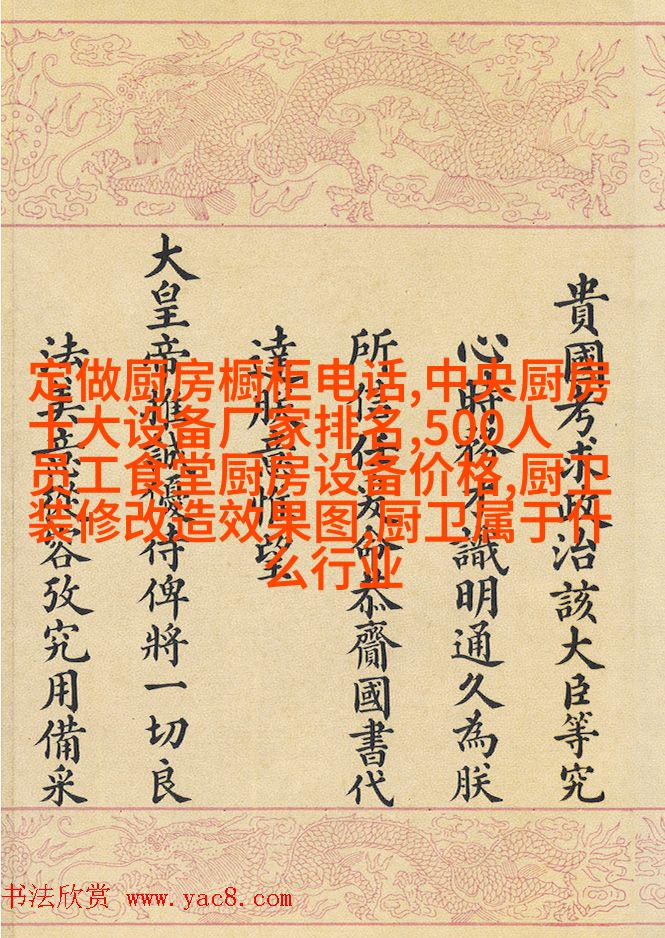 貴國考求政治該大臣等究
心時務才識明通久為朕
所信任爰命恭齎國書代
達朕意惟望
大皇帝推誠優待俾將一切良
法美意從容攷究用備采
定做厨房橱柜电话,中央厨房
十大设备厂家排名,500人
员工食堂厨房设备价格,厨卫
装修改造效果图,厨卫属于什
么行业
书法欣赏 www.yac8.com